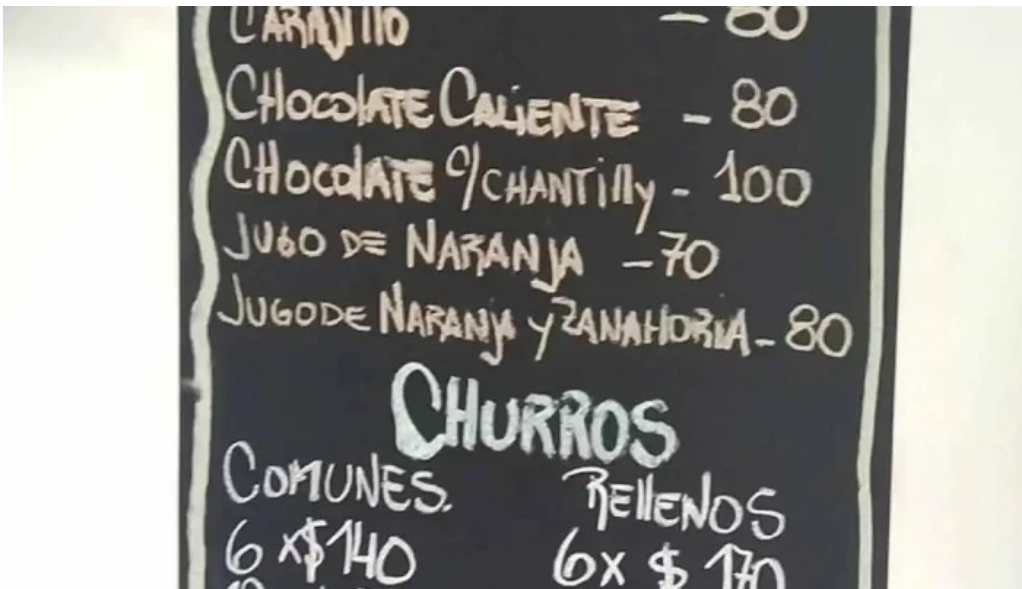 CARAJILLO - 80
CHOCOLATE CALIENTE - 80
CHOCOLATE C/CHANTILLY - 100
JUGO DE NARANJA - 70
JUGO DE NARANJA Y ZANAHORIA - 80
CHURROS
COMUNES. RELLENOS
6 x $140 6x $170